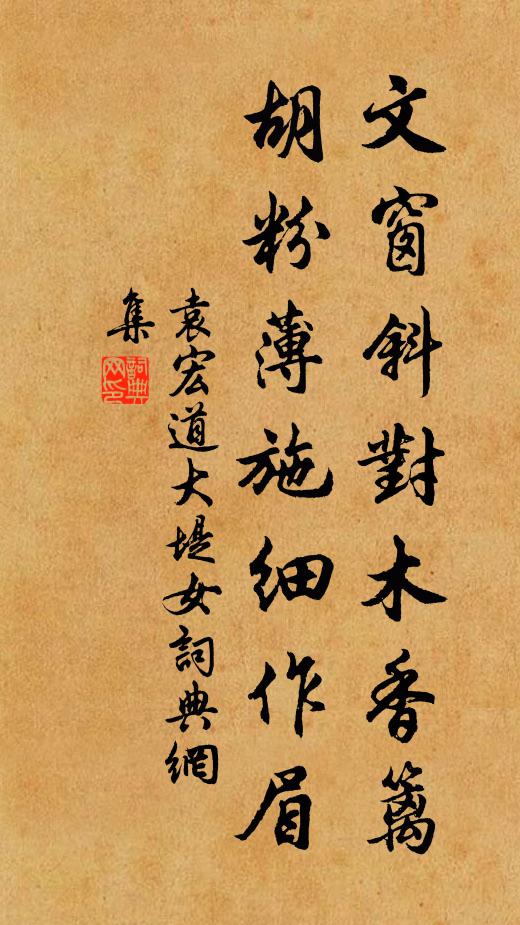 文窗斜對木香篱
胡粉薄施細作眉
袁宏道大堤女詞典網
集
詞典網印